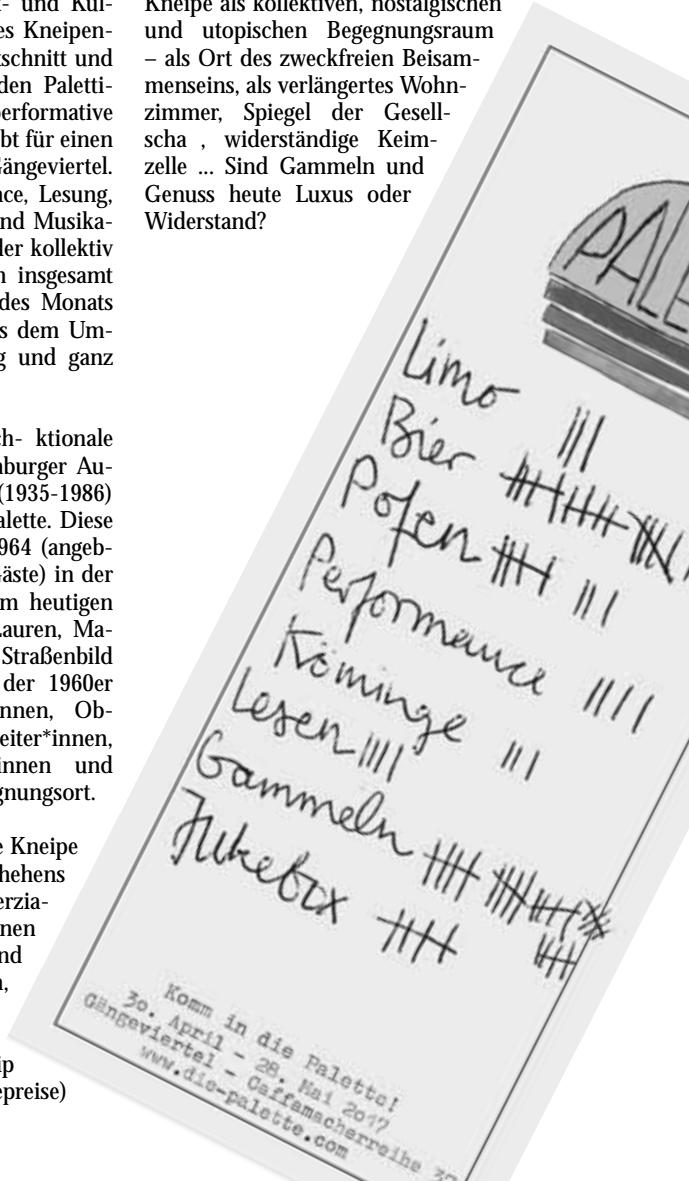 - und Kul-
es Kneipen-
tschnitt und
den Paletti-
performative
bt für einen
Gängeviertel.
nce, Lesung,
nd Musika-
der kollektiv
n insgesamt
des Monats
s dem Um-
g und ganz
ch- ktionale
nburger Au-
(1935-1986)
alette. Diese
964 (angeb-
Gäste) in der
m heutigen
Lauren, Ma-
Straßenbild
der 1960er
nnen, Ob-
eiter*innen,
innen und
gnungsort.
e Kneipe
hehens
erzia-
nen
nd
n,
ip
epreise)
Kneipe als kollektiven, nostalgischen
und utopischen Begegnungsraum
– als Ort des zweckfreien Beisam-
menseins, als verlängertes Wohn-
zimmer, Spiegel der Gesell-
scha , widerständige Keim-
zelle ... Sind Gammeln und
Genuss heute Luxus oder
Widerstand?
PALE
Limo
Bier
Pofen
Performance
Köminge
Lesen
Gammeln
Jukebox
Komm in die Palette!
30. April - 28. Mai 2017
Gängeviertel - Caffamacherreihe 37
www.die-palette.com